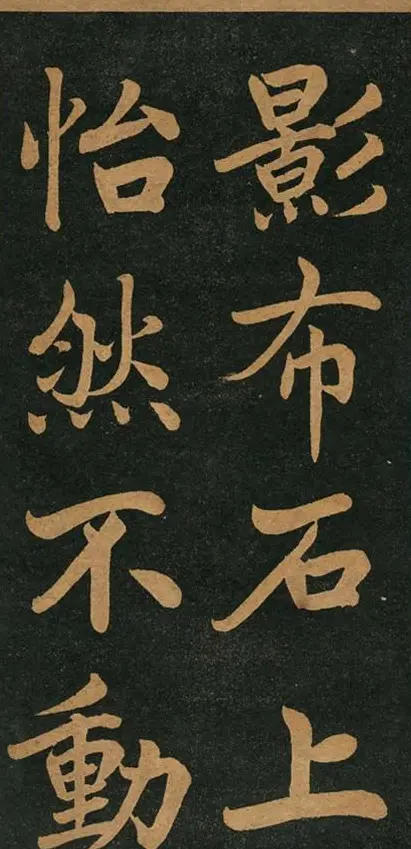 影布石上
怡然不動